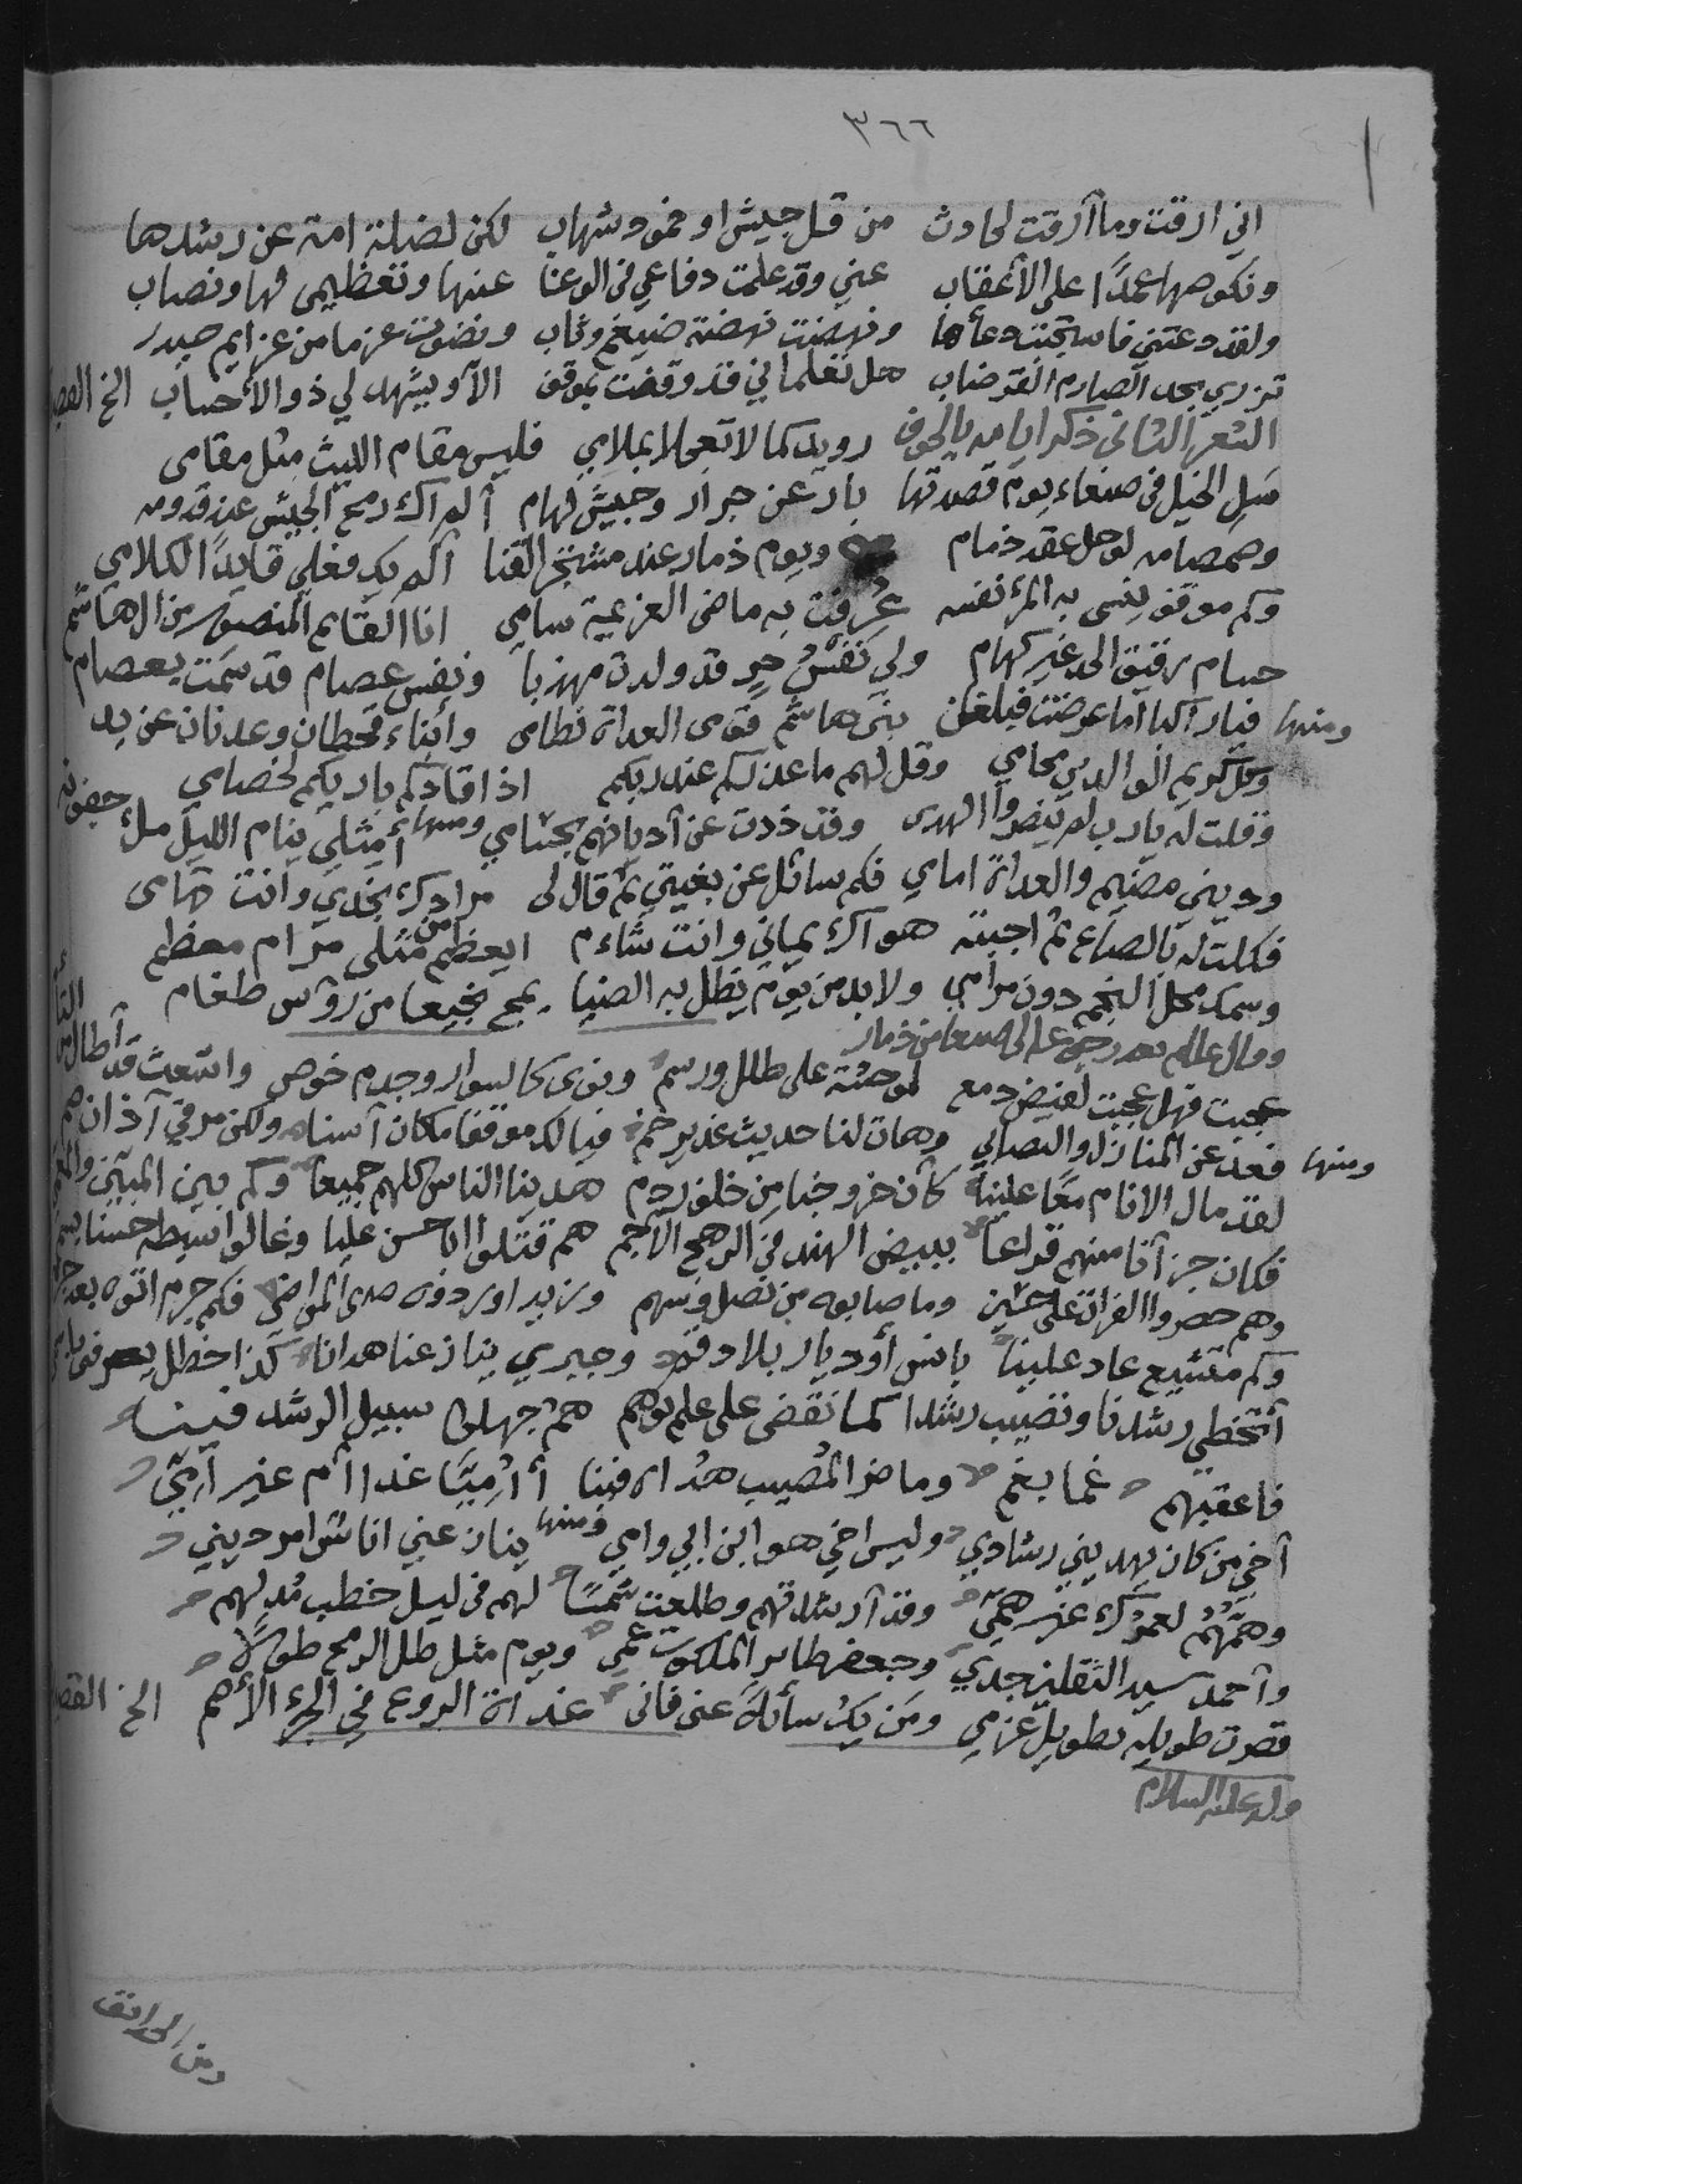 ٣٦٦
اني ارقت وما أرقت لحادث من قل جيش او خمود شهاب لكن لضلة امة عن رشدها
ونكوصها عمدًا على الأعقاب عني وقد علمت دفاعي في الوغا عنها وتعظيمي لها ونصاب
ولقد دعتني فاستجبت دعأها ونهضت نهضة ضيغم وثاب ونضوت عزما من عزايم حيدر
تزري بحد الصارم القرضاب هل تعلما اني قد وقفت بموقف الآ ويشهد لي ذو الأحساب الخ
الشعر الثاني ذكر ايامه بالجوف رويدكما لا تعجلا بملامي فليس مقام الليث مثل مقامي
سل الخيل في صنعاء يوم قصدتها بارعن جرار وجيش لهام ألم اك رمح الجيش عند قدومه
وصمصامه لوحل عقد ذمام ويوم ذمار عند مشتجر القنا ألم يك فعلي قايدًا لكلامي
وكم موقف ينسى به المرؤ نفسه عُرفت به ماضي العزيمة سامي انا القايم المنصور من ال هاشم
حسام رقيق الحد غير كهام ولي نفسُ حرٍ قد ولدت مهذبا ونفس عصام قد سمت بعصام
ومنها فيا راكبا اما عرضت فبلغن بني هاشم قومي العداة نظامي وابناء قحطان وعدنان عن يد
وكل كريم الوالدين محامي وقل لهم ما عذركم عند ربكم اذا قادكم باريكم لخصامي
وقلت له يارب لم ينصروا الهدى وقد ذدت عن أديانهم بحسامي ومنها أمثلي ينام الليل ملئ جفونه
وديني مضيم والعداة امامي فكم سائل عن بغيتي ثم قال لي مرادك نجدي وانت تهامي
فكلت له بالصاع ثم اجبته هواك يماني وانت شاءم ايعظم من مثلي مرام معظم
وسمك محل النجم دون مرامي ولابد من يوم يظل به الضبا يمج نجيعا من رؤس طغام
وقال عليه السلام رجوعه الى صنعا من ذمار
عجبت فهل عجبت لفيض دمع لموحشة على طلل ورسم ونوى كالسوار وجذم خوص واشعث قد أطال
ومنها فعد عن المنازل والتصابي وهات لنا حديث غدير خم فيا لك موقفا مكان آسناه ولكن مر في آذان صم
لقد مال الانام معًا علينا كأن خروجنا من خلف ردم هدينا الناس كلهم جميعا وكم بين المبين
فكان جزآنا منهم قراعا ببيض الهند في الرهج الأجم هم قتلوا ابا حسن عليا وغالوا سبطه حسنا بسم
وهم حصروا الفرات على حسين وما صابوه من نصل وسهم وزيد اوردوه صدى المواضي فكم جرم اتوه بعد جرم
وكم متشيع عاد علينا بانس أو ديار بلاد وجيري ينازعنا هدانا كذا اخطل يعرفني
أتخطي رشدنا وتصيب رشدا كما نقضى على علم بوهم هم جهلوا سبيل الرشد فينا
فاعقبهم غما بغم وما ضر المُصيب هُداه فينا أأُمِيًّا غدا أم غير أمّيّ
أخي من كان يهديني رشادي وليس اخي هو ابن ابي وامي ومنها ينازعني اناس امر ديني
وهمُّهُمُ لعمرُك غير همّي وقد أرشدتهم وطلعت شمسًا لهم في ليل خطب مُدلهم
وأحمد سيد الثقلين جدي وجعفر طاير الملكوت عمي ويوم مثل ظل الرمح طولًا
قصرت طويله بطويل عزمي ومَن يك سألهُ عني فاني غداة الروع في الجرء الأهم الخ
وله عليه السلام